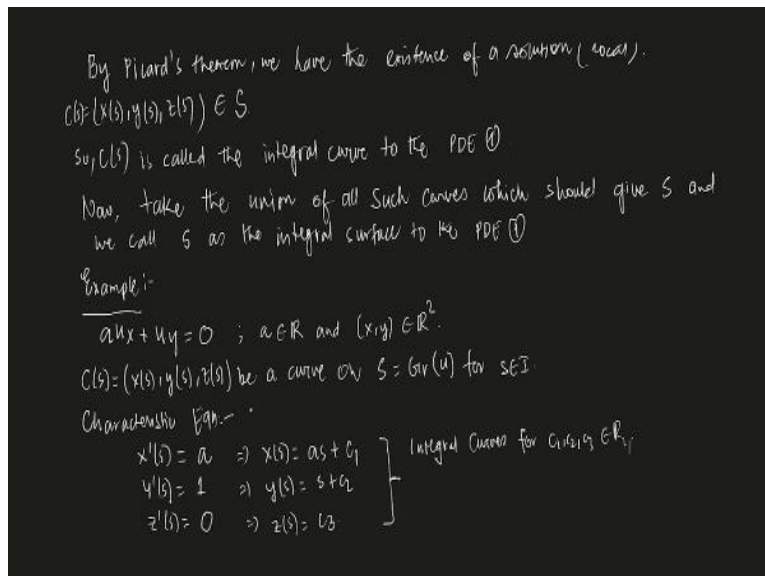 By Picard's theorem, we have the existence of a solution (local).
C(s)=(x(s), y(s), z(s)) ∈ S
So, C(s) is called the integral curve to the PDE ①
Now, take the union of all such curves which should give S and
we call S as the integral surface to the PDE ①
Example:-
aux + uy = 0 ; a ∈ R and (x,y) ∈ R².
C(s) = (x(s), y(s), z(s)) be a curve on S = Gr(u) for s∈I.
Characteristic Eqn.-
x'(s) = a ⇒ x(s) = as + c₁
y'(s) = 1 ⇒ y(s) = s + c₂
z'(s) = 0 ⇒ z(s) = c₃.
Integral Curves for c₁,c₂,c₃ ∈ R,